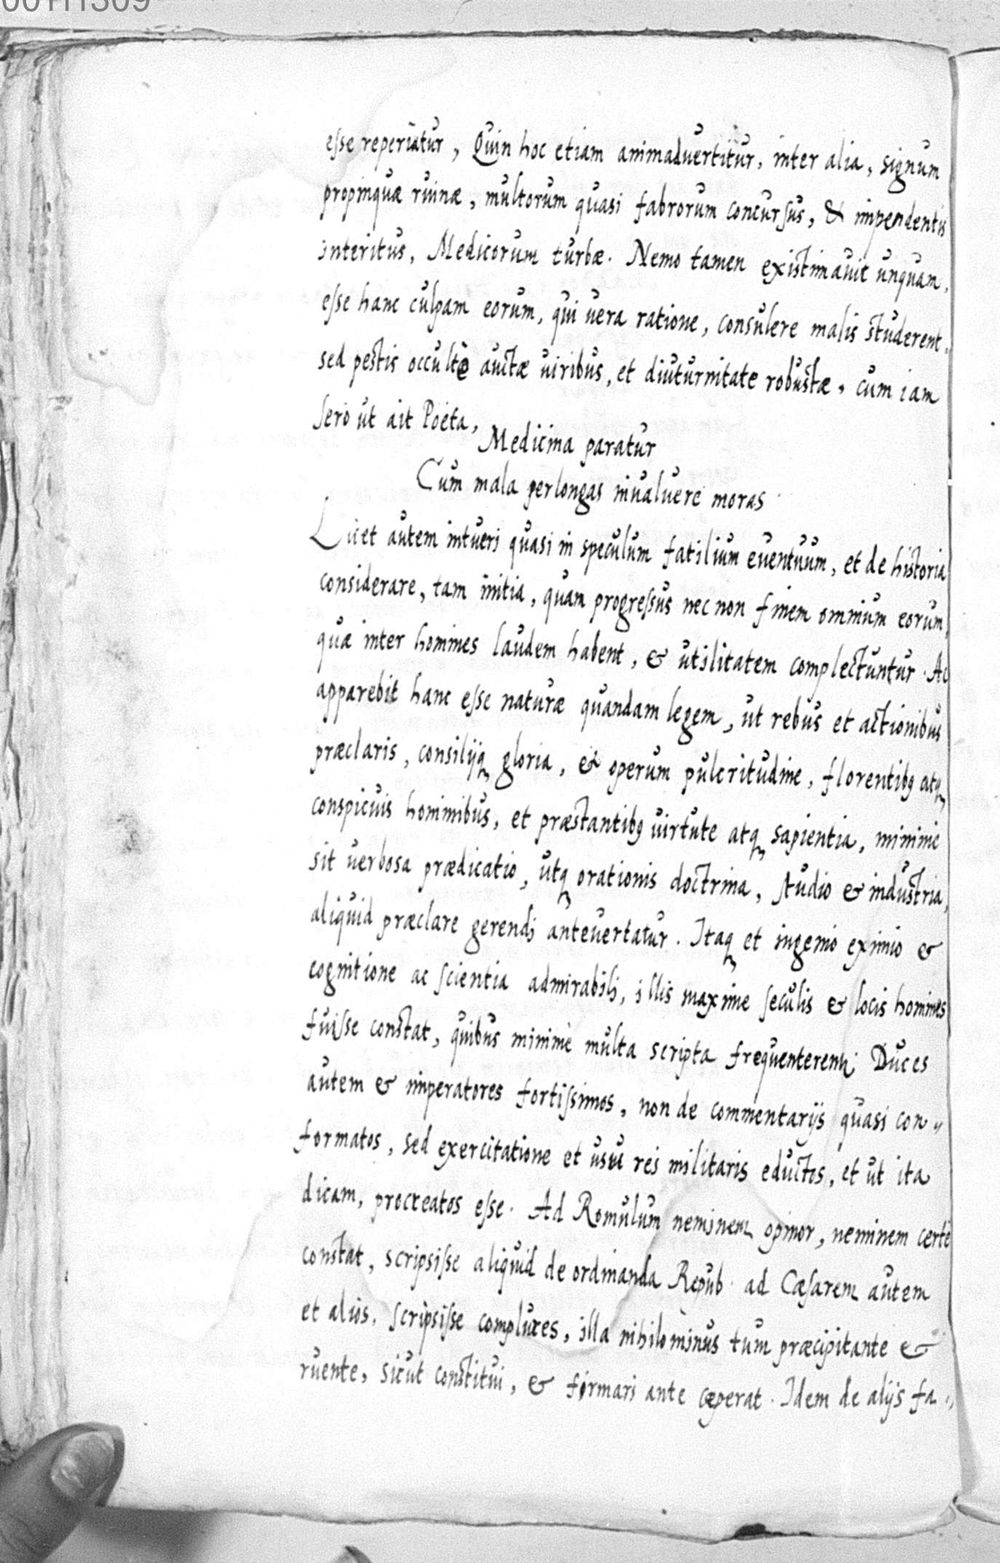 esse reperiatur, Quin hoc etiam animadvertitur, inter alia, signum
propinquæ ruinæ, multorum quasi fabrorum concursus, & impendentis
interitus, Medicorum turbæ. Nemo tamen existimavit unquam,
esse hanc culpam eorum, qui uera ratione, consulere malis studerent,
sed pestis occultè auctæ uiribus, et diuturnitate robustæ, cum iam
sero ut ait Poëta,
Medicina paratur
Cum mala perlongas inualuere moras
Licet autem intueri quasi in speculum fatilium euentuum, et de historia
considerare, tam initia, quam progressus nec non finem omnium eorum,
quæ inter homines laudem habent, & utilitatem complectuntur. Ac
apparebit hanc esse naturæ quandam legem, ut rebus et actionibus
præclaris, consilijq gloria, & operum pulcritudine, florentibq atq
conspicuis hominibus, et præstantibq uirtute atq sapientia, minime
sit uerbosa prædicatio, utq orationis doctrina, studio & industria,
aliquid præclare gerendi anteuertatur. Itaq et ingenio eximio &
cognitione ac scientia admirabili, illis maxime seculis & locis homines
fuisse constat, quibus minimè multa scripta frequenterent; Duces
autem & imperatores fortissimos, non de commentarijs quasi con„
formatos, sed exercitatione et usu rei militaris eductos, et ut ita
dicam, procreatos esse. Ad Romulum neminem opinor, neminem certè
constat, scripsisse aliquid de ordinanda Repub. ad Cæsarem autem
et alios, scripsisse complures, illa nihilominus tum præcipitante &
ruente, sicut constitui, & firmari ante cœperat. Idem de alijs fa„